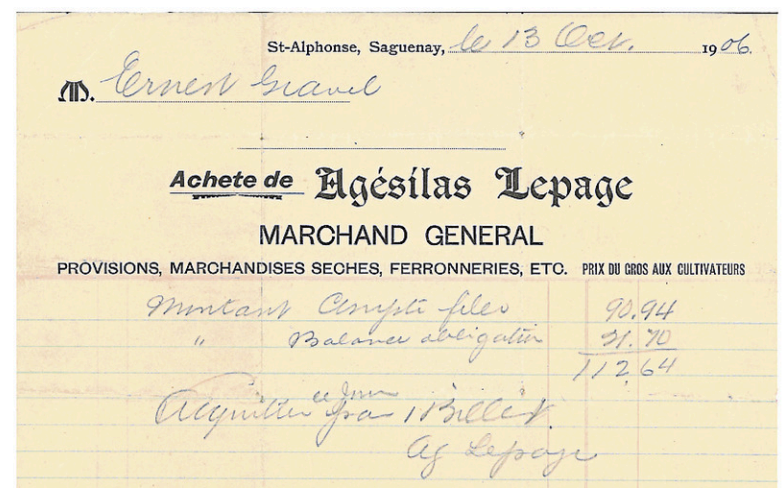 St-Alphonse, Saguenay, le 13 Oct. 1906.
M. Ernest Gravel
Achete de Agésilas Lepage
MARCHAND GENERAL
PROVISIONS, MARCHANDISES SECHES, FERRONNERIES, ETC. PRIX DU GROS AUX CULTIVATEURS
Montant Compte 90.94
" Balance obligation 21.70
112.64
Acquitter ce jour par 1 Billet.
Ag Lepage